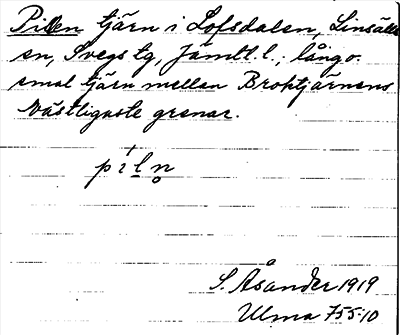 Pilen tjärn i Lofsdalen, Linsäll-
en, Svegs tg, Jämtl. l.; lång o.
smal tjärn mellan Brohtjärnens
västligaste grenar.
píln̥
S. Åsander 1919
Ulma 755:10